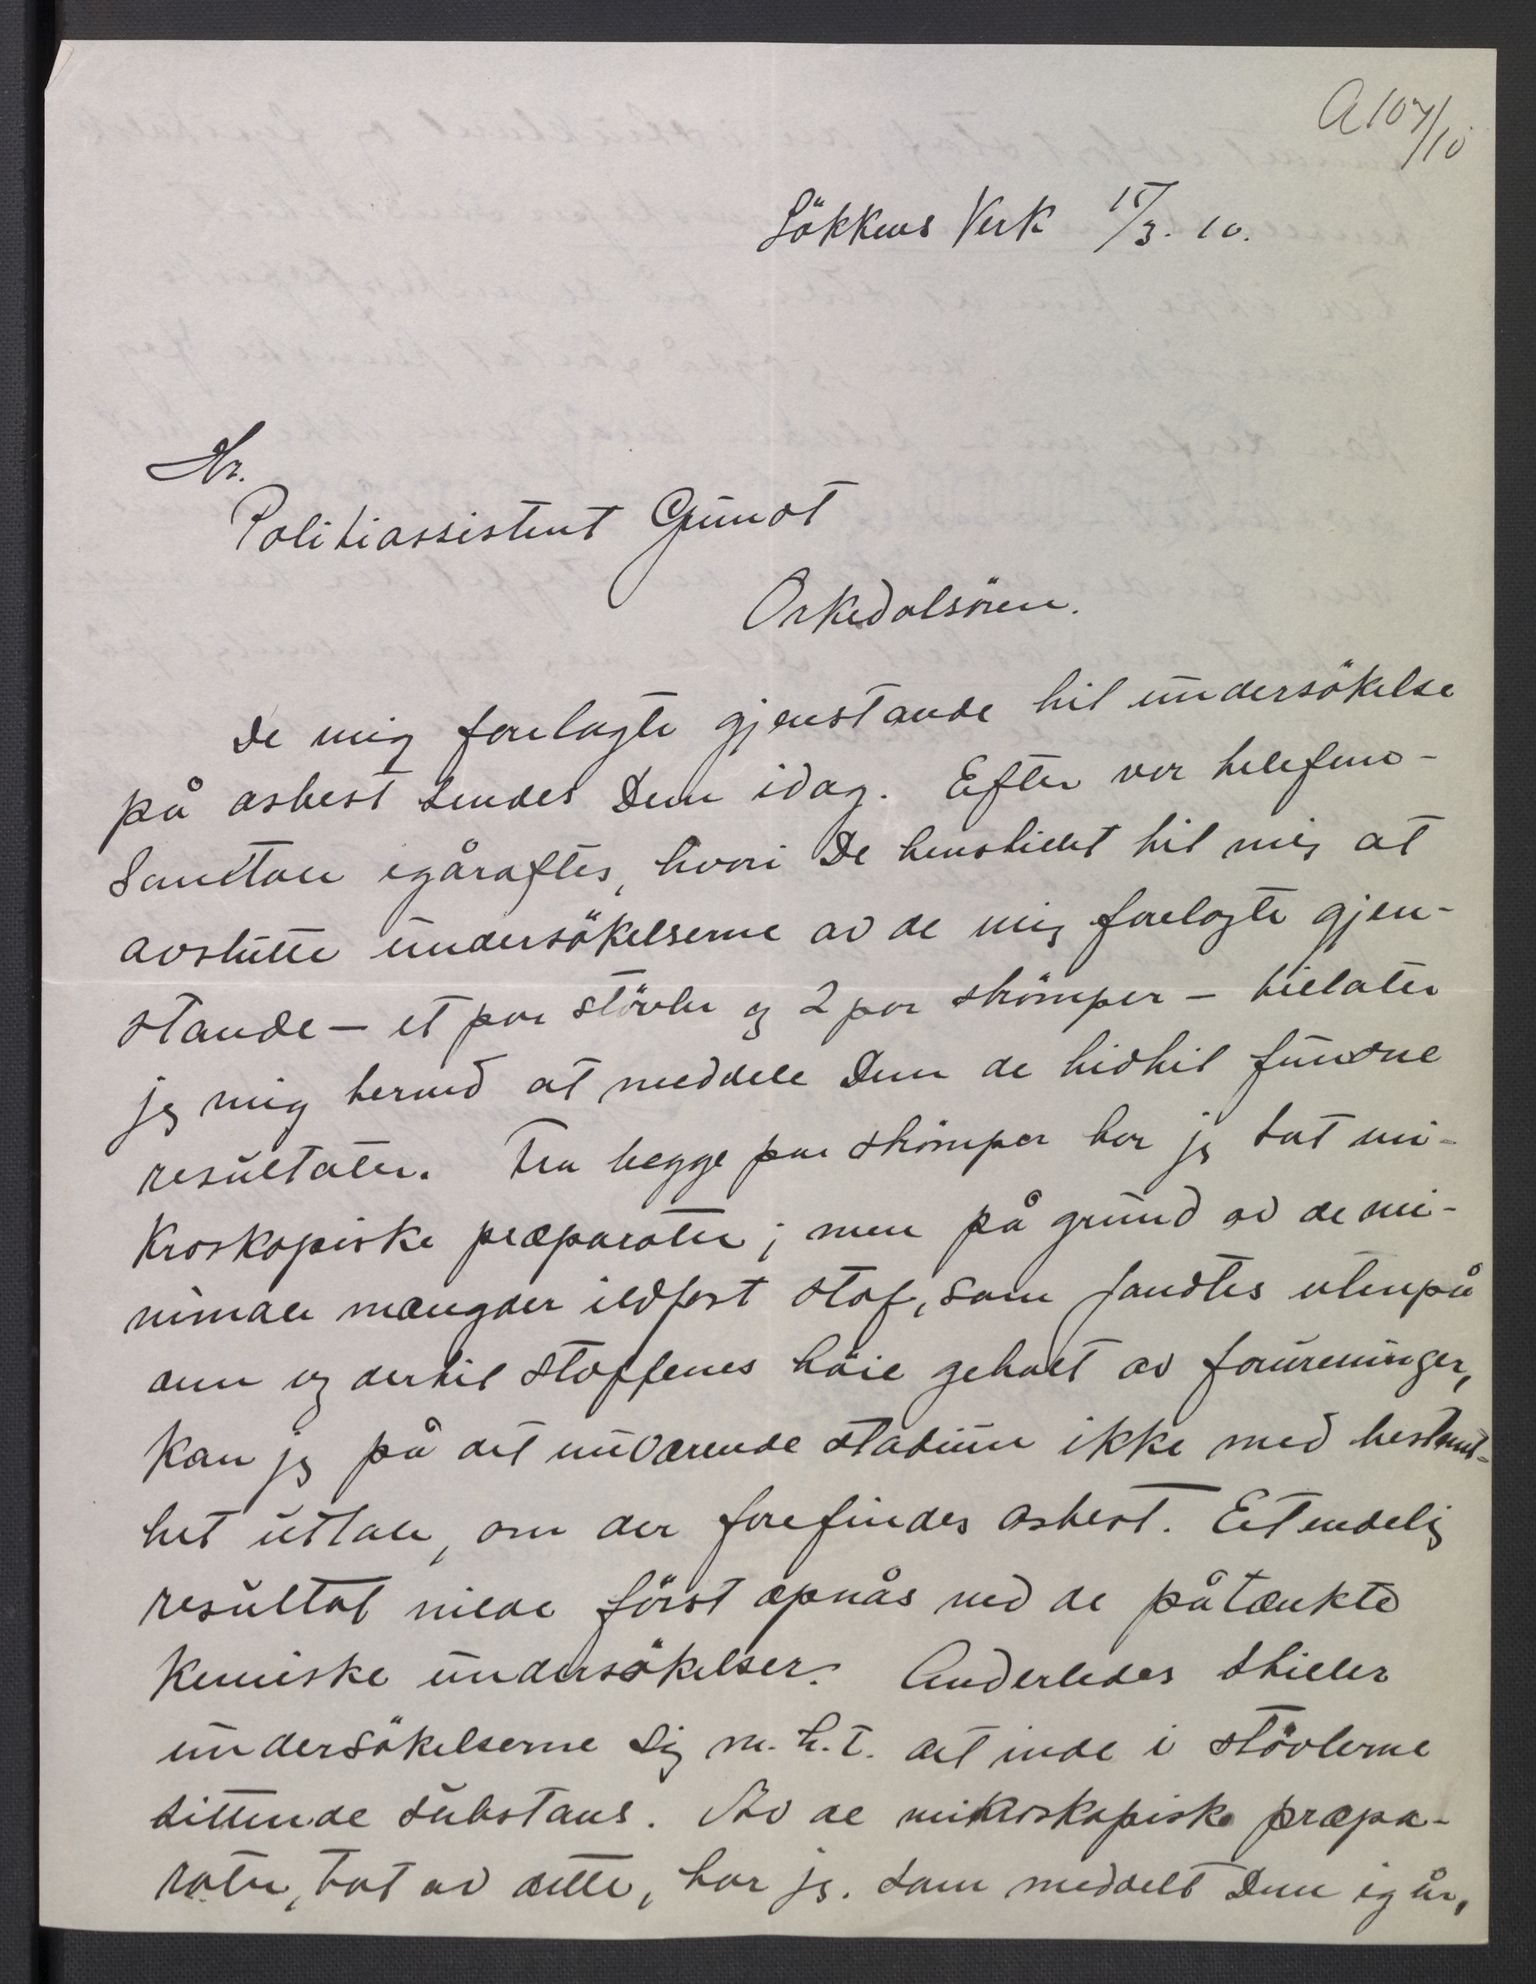 A 107/10
Lökkens Verk 15/3. 10.
Hr.
Politiassistent Gundt
Orkedalsören.
De mig forelagte gjenstande til undersökelse
på asbest sendes Dem idag. Efter vor telefon-
samtale igåraftes, hvori De henstillet til mig at
avslutte undersökelserne av de mig forelagte gjen-
stande – et par stövler og 2 par strömper – tillater
jeg mig herved at meddele Dem de hidtil fundne
resultater. Fra begge par strömper har jeg tat mi-
kroskopiske præparater; men på grund av de mi-
nimale mængder ildfast stof, som fandtes utenpå
dem og dertil stoffenes höie gehalt av forureninger,
kan jeg på det nuværende stadium ikke med bestemt-
het uttale, om der forefindes asbest. Et endelig
resultat vilde först opnås ved de påtænkte
kemiske undersökelser. Anderledes stiller
undersökelserne sig m. h. t. det inde i stövlerne
sittende substans. Av de mikroskopiske præpa-
rater, tat av dette, har jeg, som meddelt Dem igår,